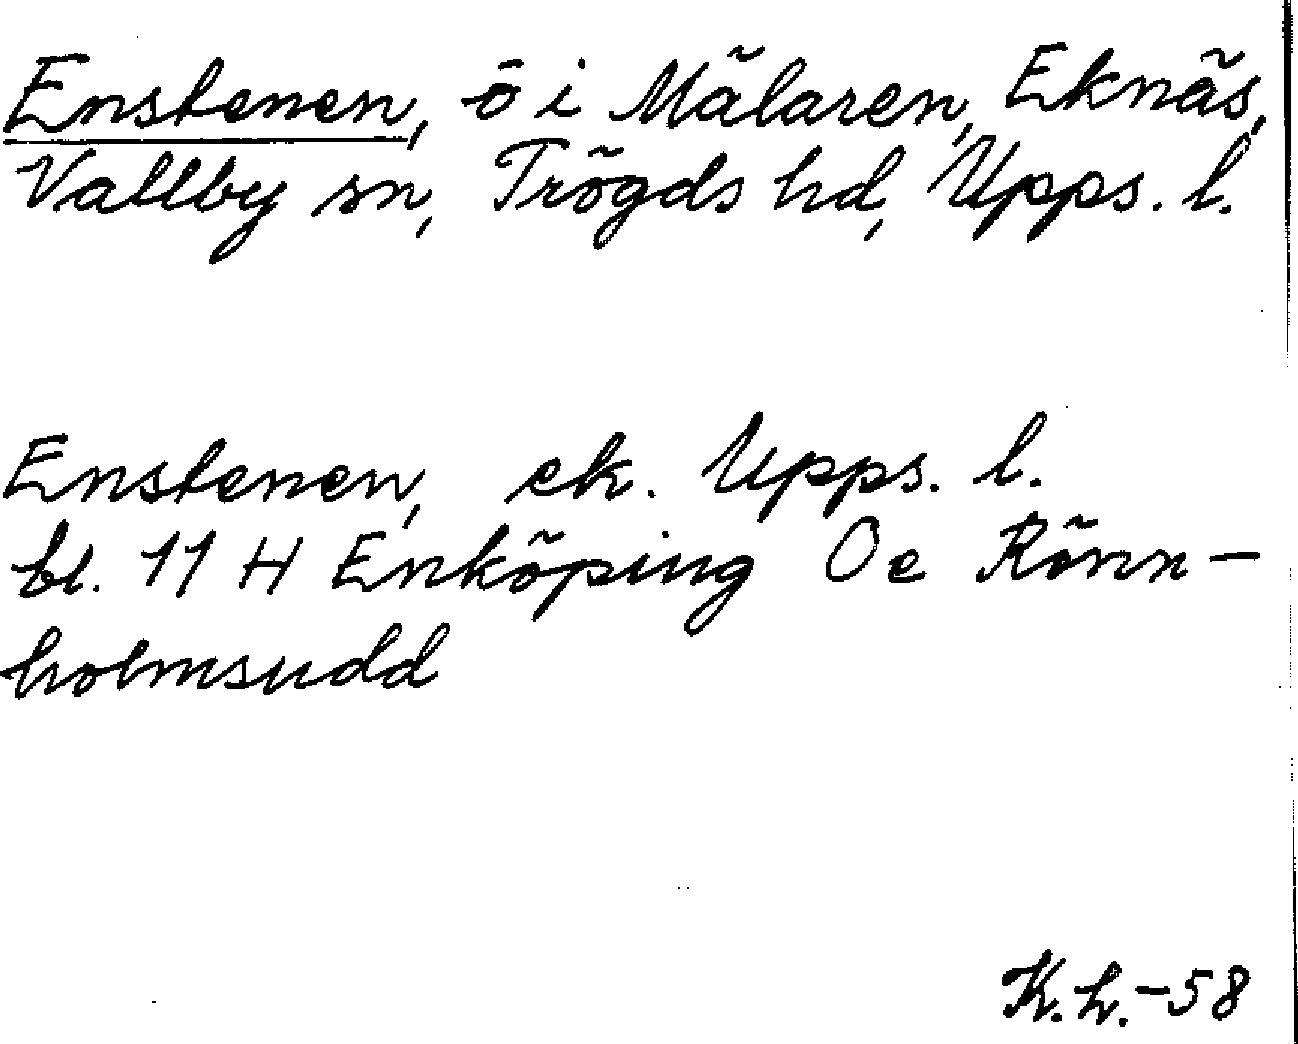 Enstenen, ö i Mälaren, Eknäs,
Vallby sn, Trögds hd, Upps. l.
Enstenen, ek. Upps. l.
bl. 11 H Enköping Oe Rönn-
holmsudd
K.h.-58